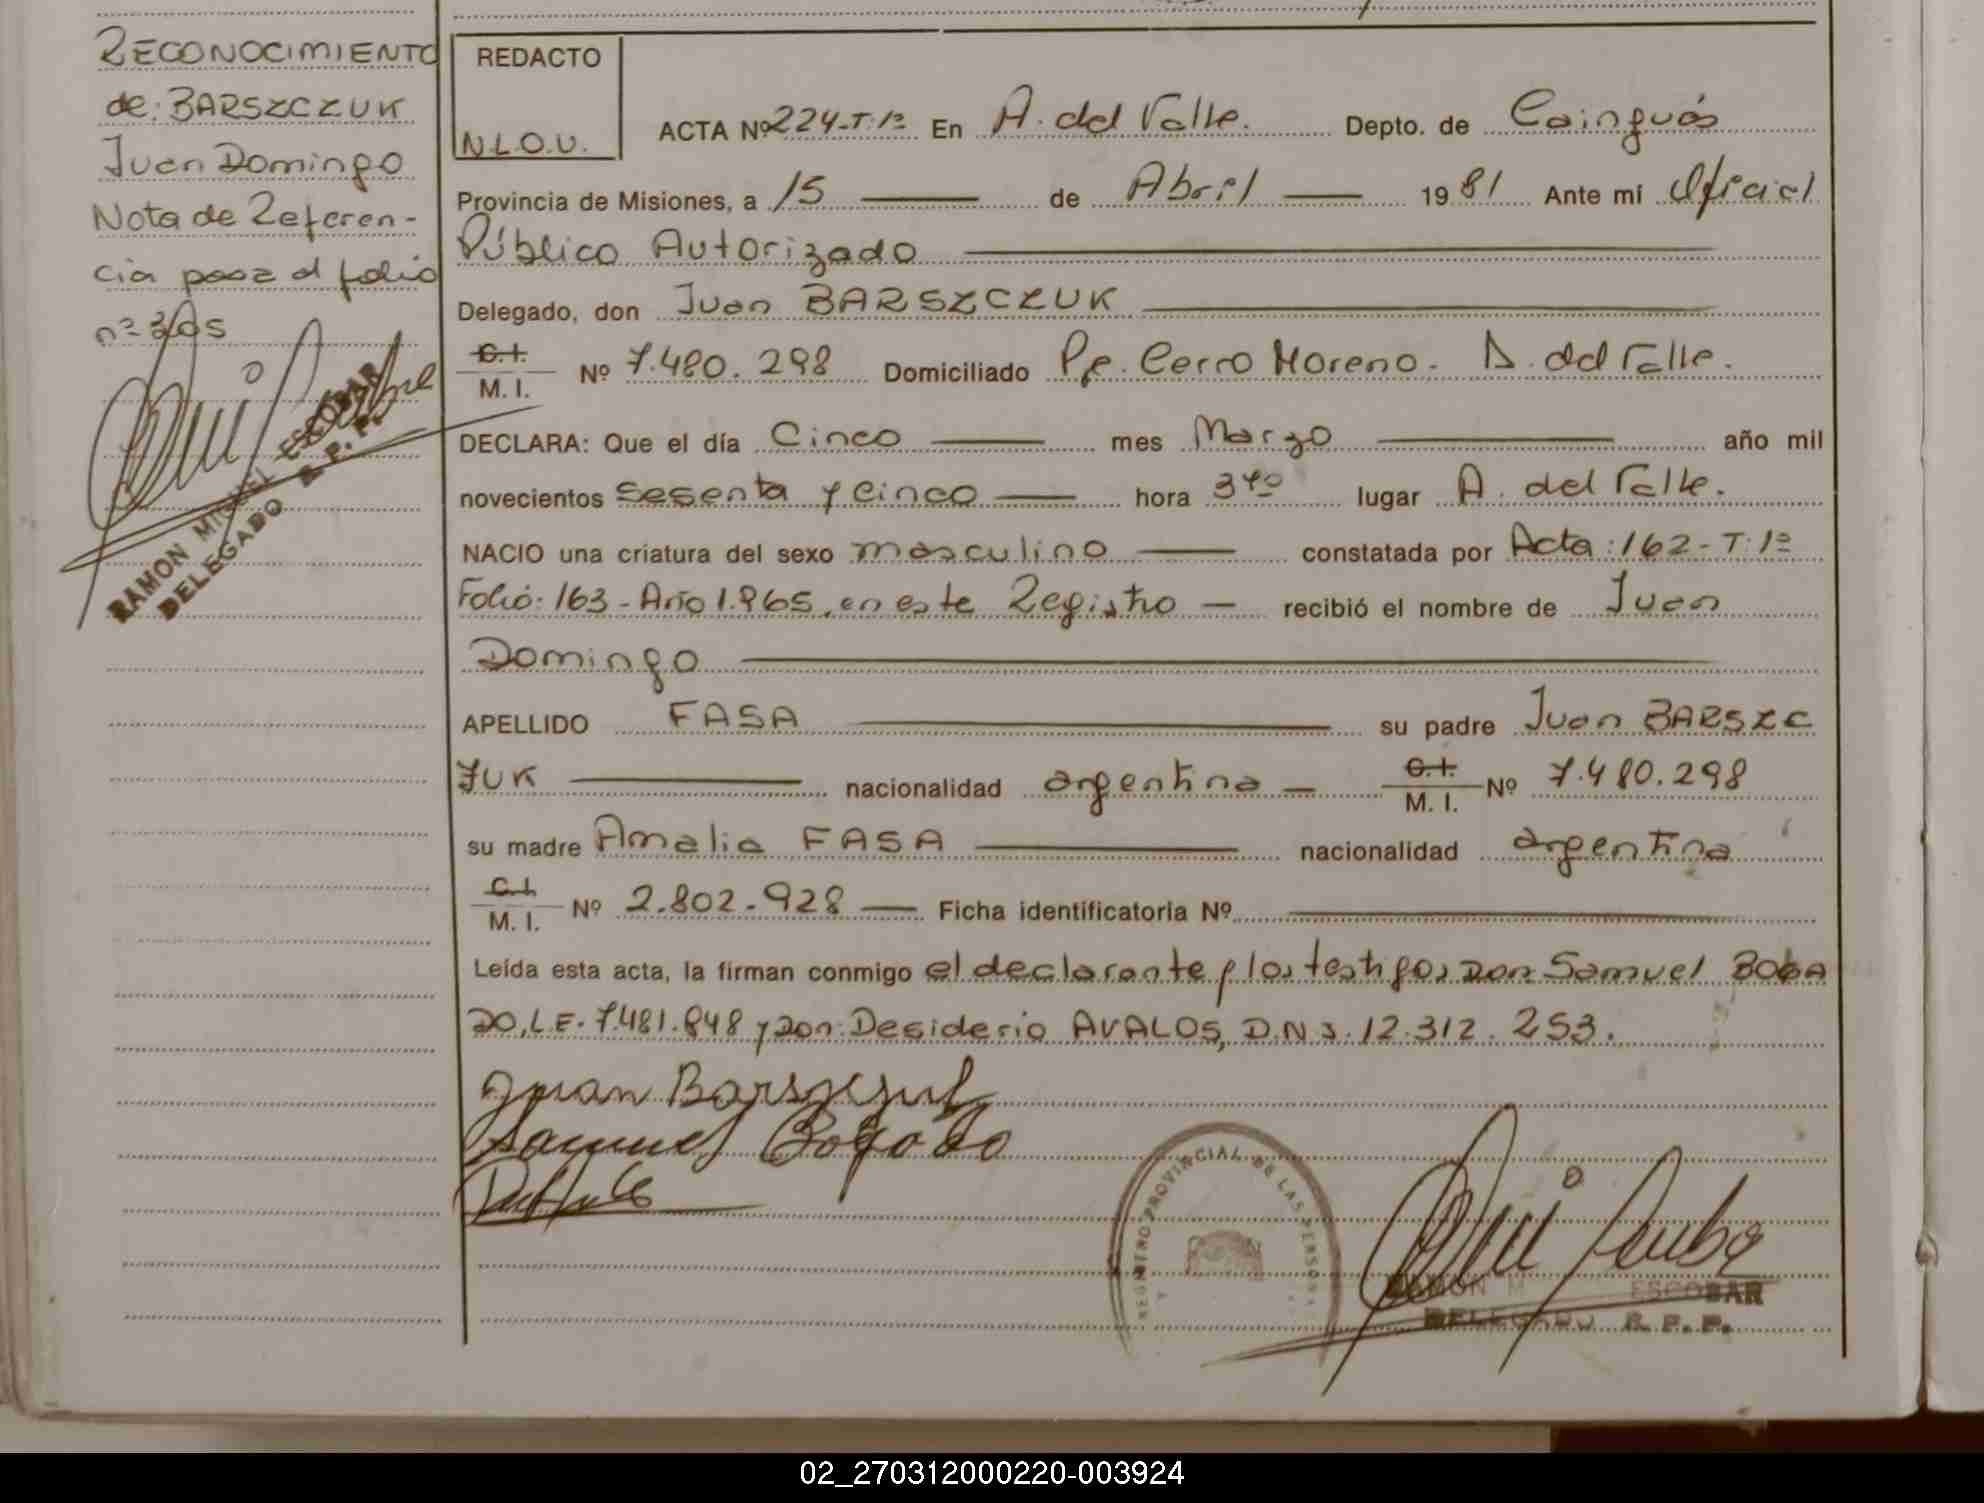 RECONOCIMIENTO
de: BARSZCZUK
Juan Domingo
Nota de Referen-
cia pasa al folio
nº 305
RAMON MIGUEL ESCOBAR
DELEGADO R. P. P.
REDACTO
N.L.O.V.
ACTA Nº 224-T:1º En A. del Valle. Depto. de Cainguás
Provincia de Misiones, a 15 de Abril 1981 Ante mí Oficial
Público Autorizado
Delegado, don Juan BARSZCZUK
C.I.
M. I. Nº 7.480.298 Domiciliado Pje. Cerro Moreno - A. del Valle.
DECLARA: Que el día Cinco mes Marzo año mil
novecientos sesenta y cinco hora 3 40 lugar A. del Valle.
NACIO una criatura del sexo masculino constatada por Acta: 162-T:1º
Folio: 163 - Año 1.965, en este Registro — recibió el nombre de Juan
Domingo
APELLIDO FASA su padre Juan BARSZC
ZUK nacionalidad argentina — C.I. M. I. Nº 7.480.298
su madre Amalia FASA nacionalidad argentina
C.I.
M. I. Nº 2.802.928 — Ficha identificatoria Nº
Leída esta acta, la firman conmigo el declarante y los testigos Don: Samuel BOGA
DO, L.E. 7.481.848 y Don: Desiderio AVALOS, D.N.I. 12.312.253.
Juan Barszczuk
Samuel Bogado
REGISTRO PROVINCIAL DE LAS PERSONAS
RAMON M ESCOBAR
DELEGADO R. P. P.
02_270312000220-003924